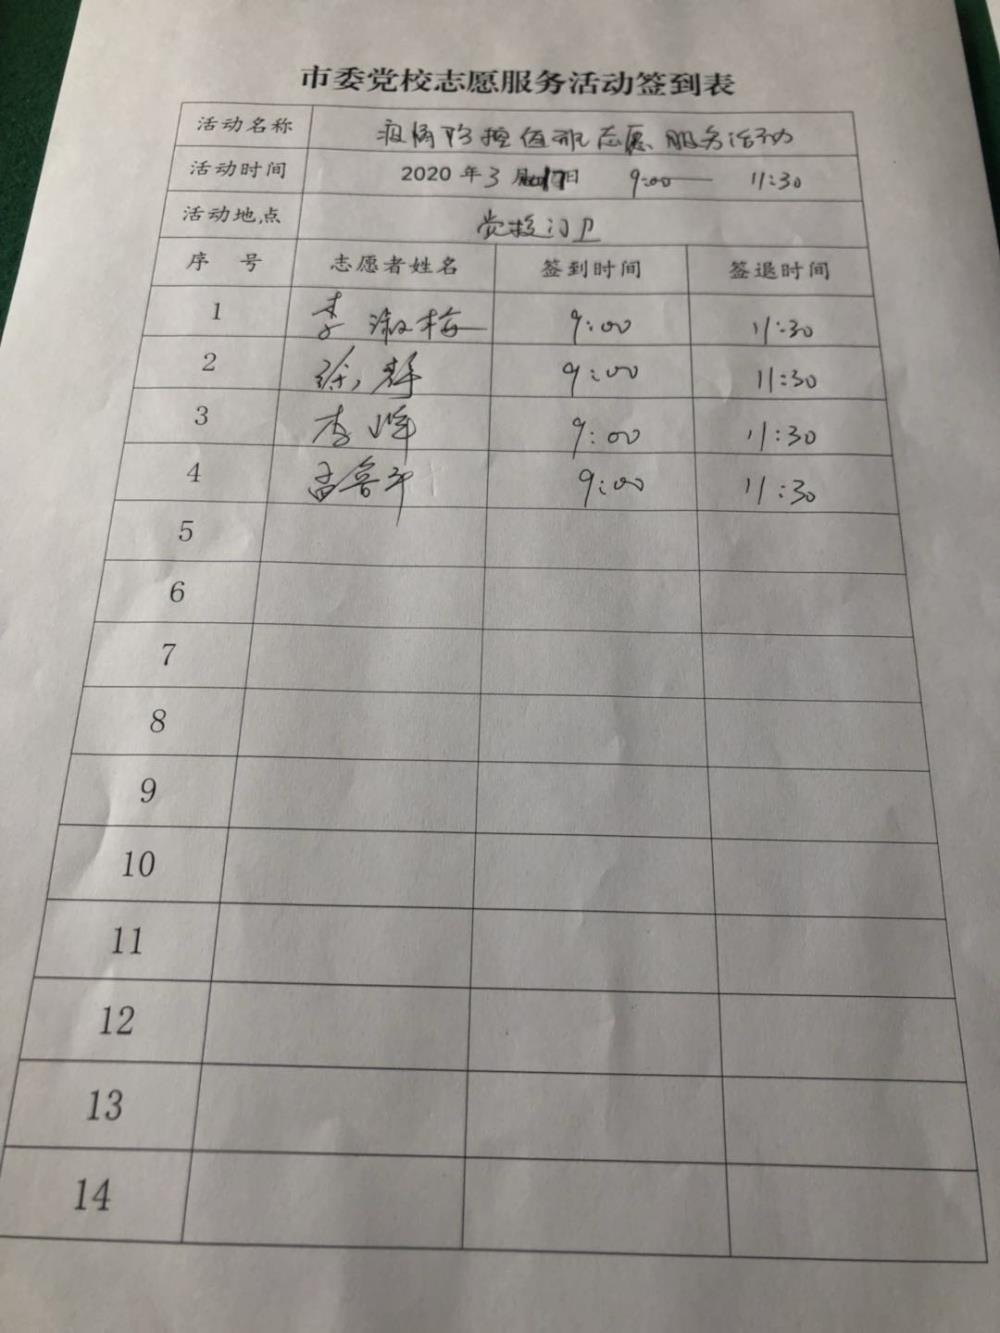 市委党校志愿服务活动签到表
活动名称 疫情防控值班志愿服务活动
活动时间 2020年3月17日 9:00—11:30
活动地点 党校门卫
序号 志愿者姓名 签到时间 签退时间
1 李淑梅 9:00 11:30
2 徐静 9:00 11:30
3 李峰 9:00 11:30
4 9:00 11:30
5
6
7
8
9
10
11
12
13
14